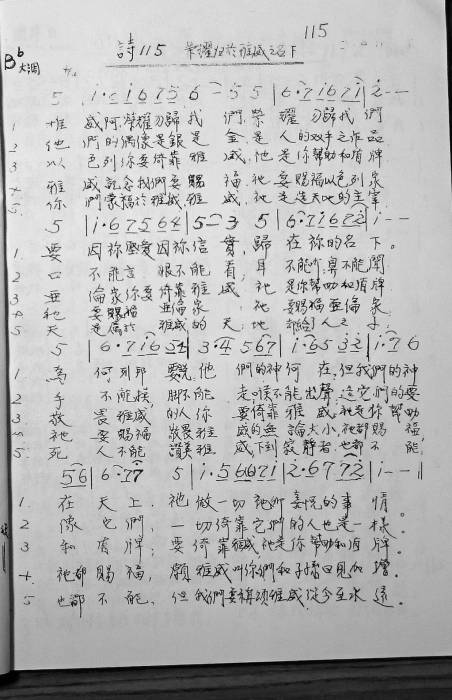 115
詩115 榮耀歸於雅威之名下
B♭大調
5 | i·c i 675 6 - 5 5 | 6·7 i 67 i | 2 - -
1 雅威阿,榮耀勿歸我們,榮耀勿歸我們
2 他們的偶像是銀是金,是人的双手之作品
3 以色列你要倚靠雅威,他是你幫助和盾牌
4 雅威記念我們要賜福,祂要賜福以色列家
5 你們蒙福於雅威雅威,祂是造天地的主宰
5 | i·67564 | 5 - 3 5 | 6·7 i 672 | i - -
1 要因祢慈愛因祢信實,歸在祢的名下。
2 口不能言,眼不能看,耳不能听,鼻不能聞
3 亞倫家你要倚靠雅威,祂是你幫助和盾牌
4 祂要賜福亞倫家,祂要賜福亞倫家
5 天是屬於雅威的天,地都給了人之子
5 | 6·7 i 654 | 3·4 567 | i·65 32 | i·76
1 為何列邦要說,他們的神何在,但我們的神
2 手不能摸,脚不能走,喉不能出聲,造它們的要
3 敬畏雅威的人你要倚靠雅威,祂是你幫助
4 祂要賜福敬畏雅威的無論大小,祂都賜福,
5 死人不能讚美雅威,下到寂靜者,也都不能,
56 | 6·77 5 | i·5667 i | 2·6772 | i - - ‖
1 在天上,祂做一切祂所喜悅的事情。
2 像它們,一切倚靠它們的人也是一樣。
3 和盾牌;要倚靠雅威祂是你幫助和盾牌。
4 祂都賜福,願雅威叫你們和子孫日見加增。
5 也都不能,但我們要稱頌雅威從今至永遠。